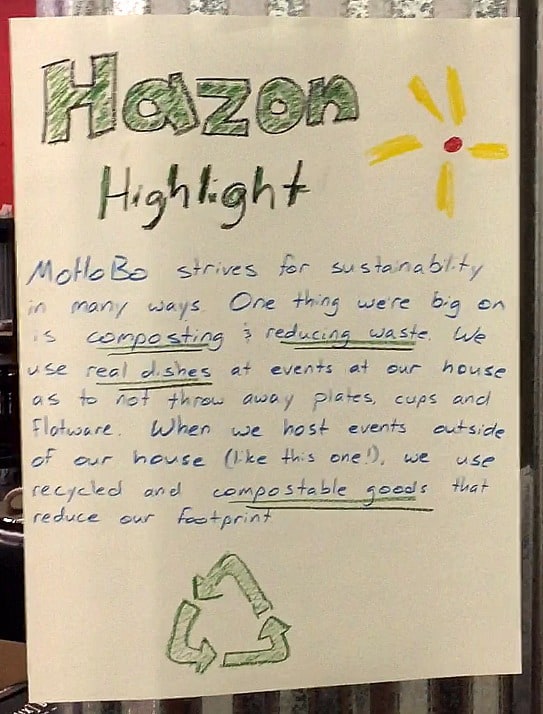 Hazon
Highlight
MoHoBo strives for sustainability
in many ways. One thing we're big on
is composting & reducing waste. We
use real dishes at events at our house
as to not throw away plates, cups and
flatware. When we host events outside
of our house (like this one!), we use
recycled and compostable goods that
reduce our footprint